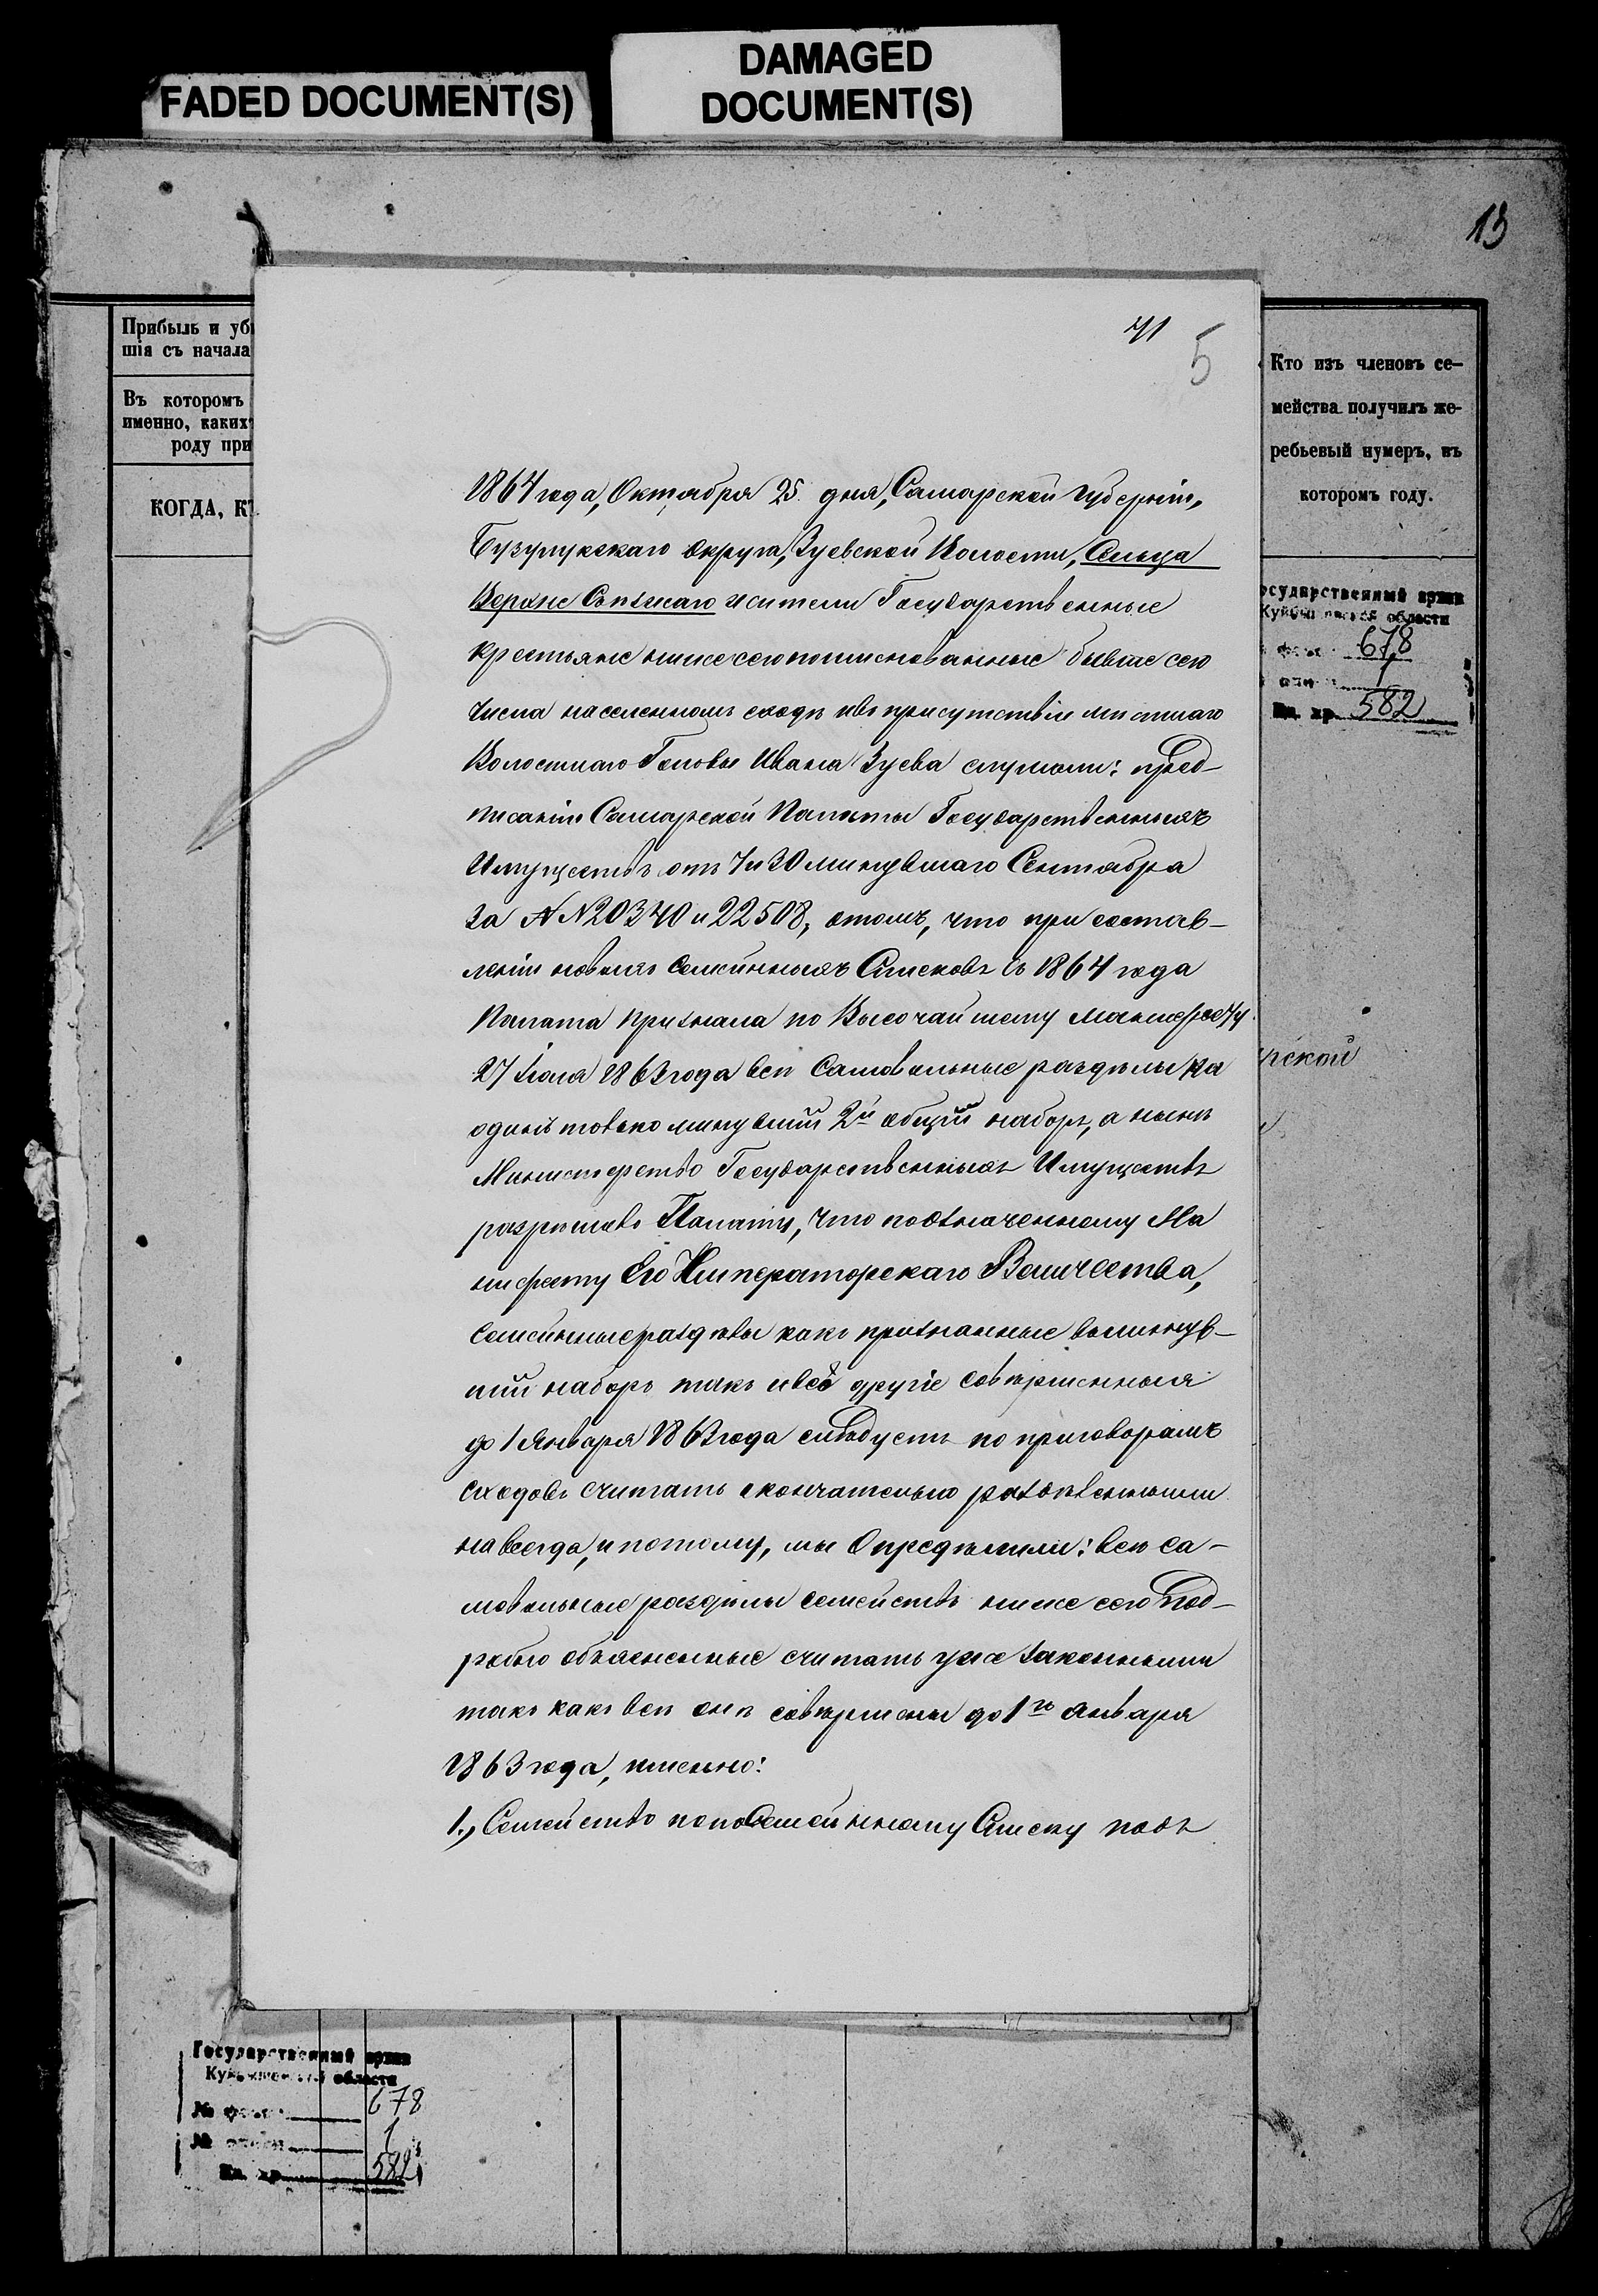 FADED DOCUMENT(S)
DAMAGED
DOCUMENT(S)
13
Прибыль и уб
шія съ начала
Въ которомъ
именно, какихъ
роду при
КОГДА, К
Кто изъ членовъ се-
мейства получилъ же-
ребьевый нумеръ, въ
которомъ году.
осударственный архив
области
678
1
Ед. хр. 582
рской
41
5
1864 года, Октября 25 дня, Самарской Губерніи,
Бузулукскаго Округа, Зуевской Волости, Сельца
Верхне Съѣзжаго жители Государственные
крестьяне ниже сего поименованные бывше сего
числа на сельскомъ сходѣ и въ присутствіи мѣстнаго
Волостнаго Головы Ивана Зуева слушали: пред-
писаніи Самарской Палаты Государственныхъ
Имуществъ отъ 7 и 30 минувшаго Сентября
за №№ 20340 и 22508, о томъ, что при состав-
леніи новыхъ Семейныхъ Списковъ съ 1864 года
Палата признала по Высочайшему Манифесту
27 Іюля 1863 года всѣ Самовольные раздѣлы на
одинъ только минувшій 2й общій наборъ, а нынѣ
Министерство Государственныхъ Имуществъ
разрѣшило Палату, что по означенному Ма
нифесту Его Императорскаго Величества,
Семейные раздѣлы какъ признанные въ минув-
шій наборъ такъ и всѣ другіе совершенныя
до 1 Января 1863 года слѣдуетъ по приговорамъ
сходовъ считать окончательно раздѣленными
навсегда, и потому, мы Опредѣлили: всѣ са-
мовольные раздѣлы семействъ ниже сего под-
робно объясненные считать уже законными
такъ какъ всѣ онѣ совершены до 1го Января
1863 года, именно:
1., Семейство по посемейному Списку подъ
Государственный архив
Куйбышевской области
№ фонда 678
№ описи 1
Ед. хр. 582